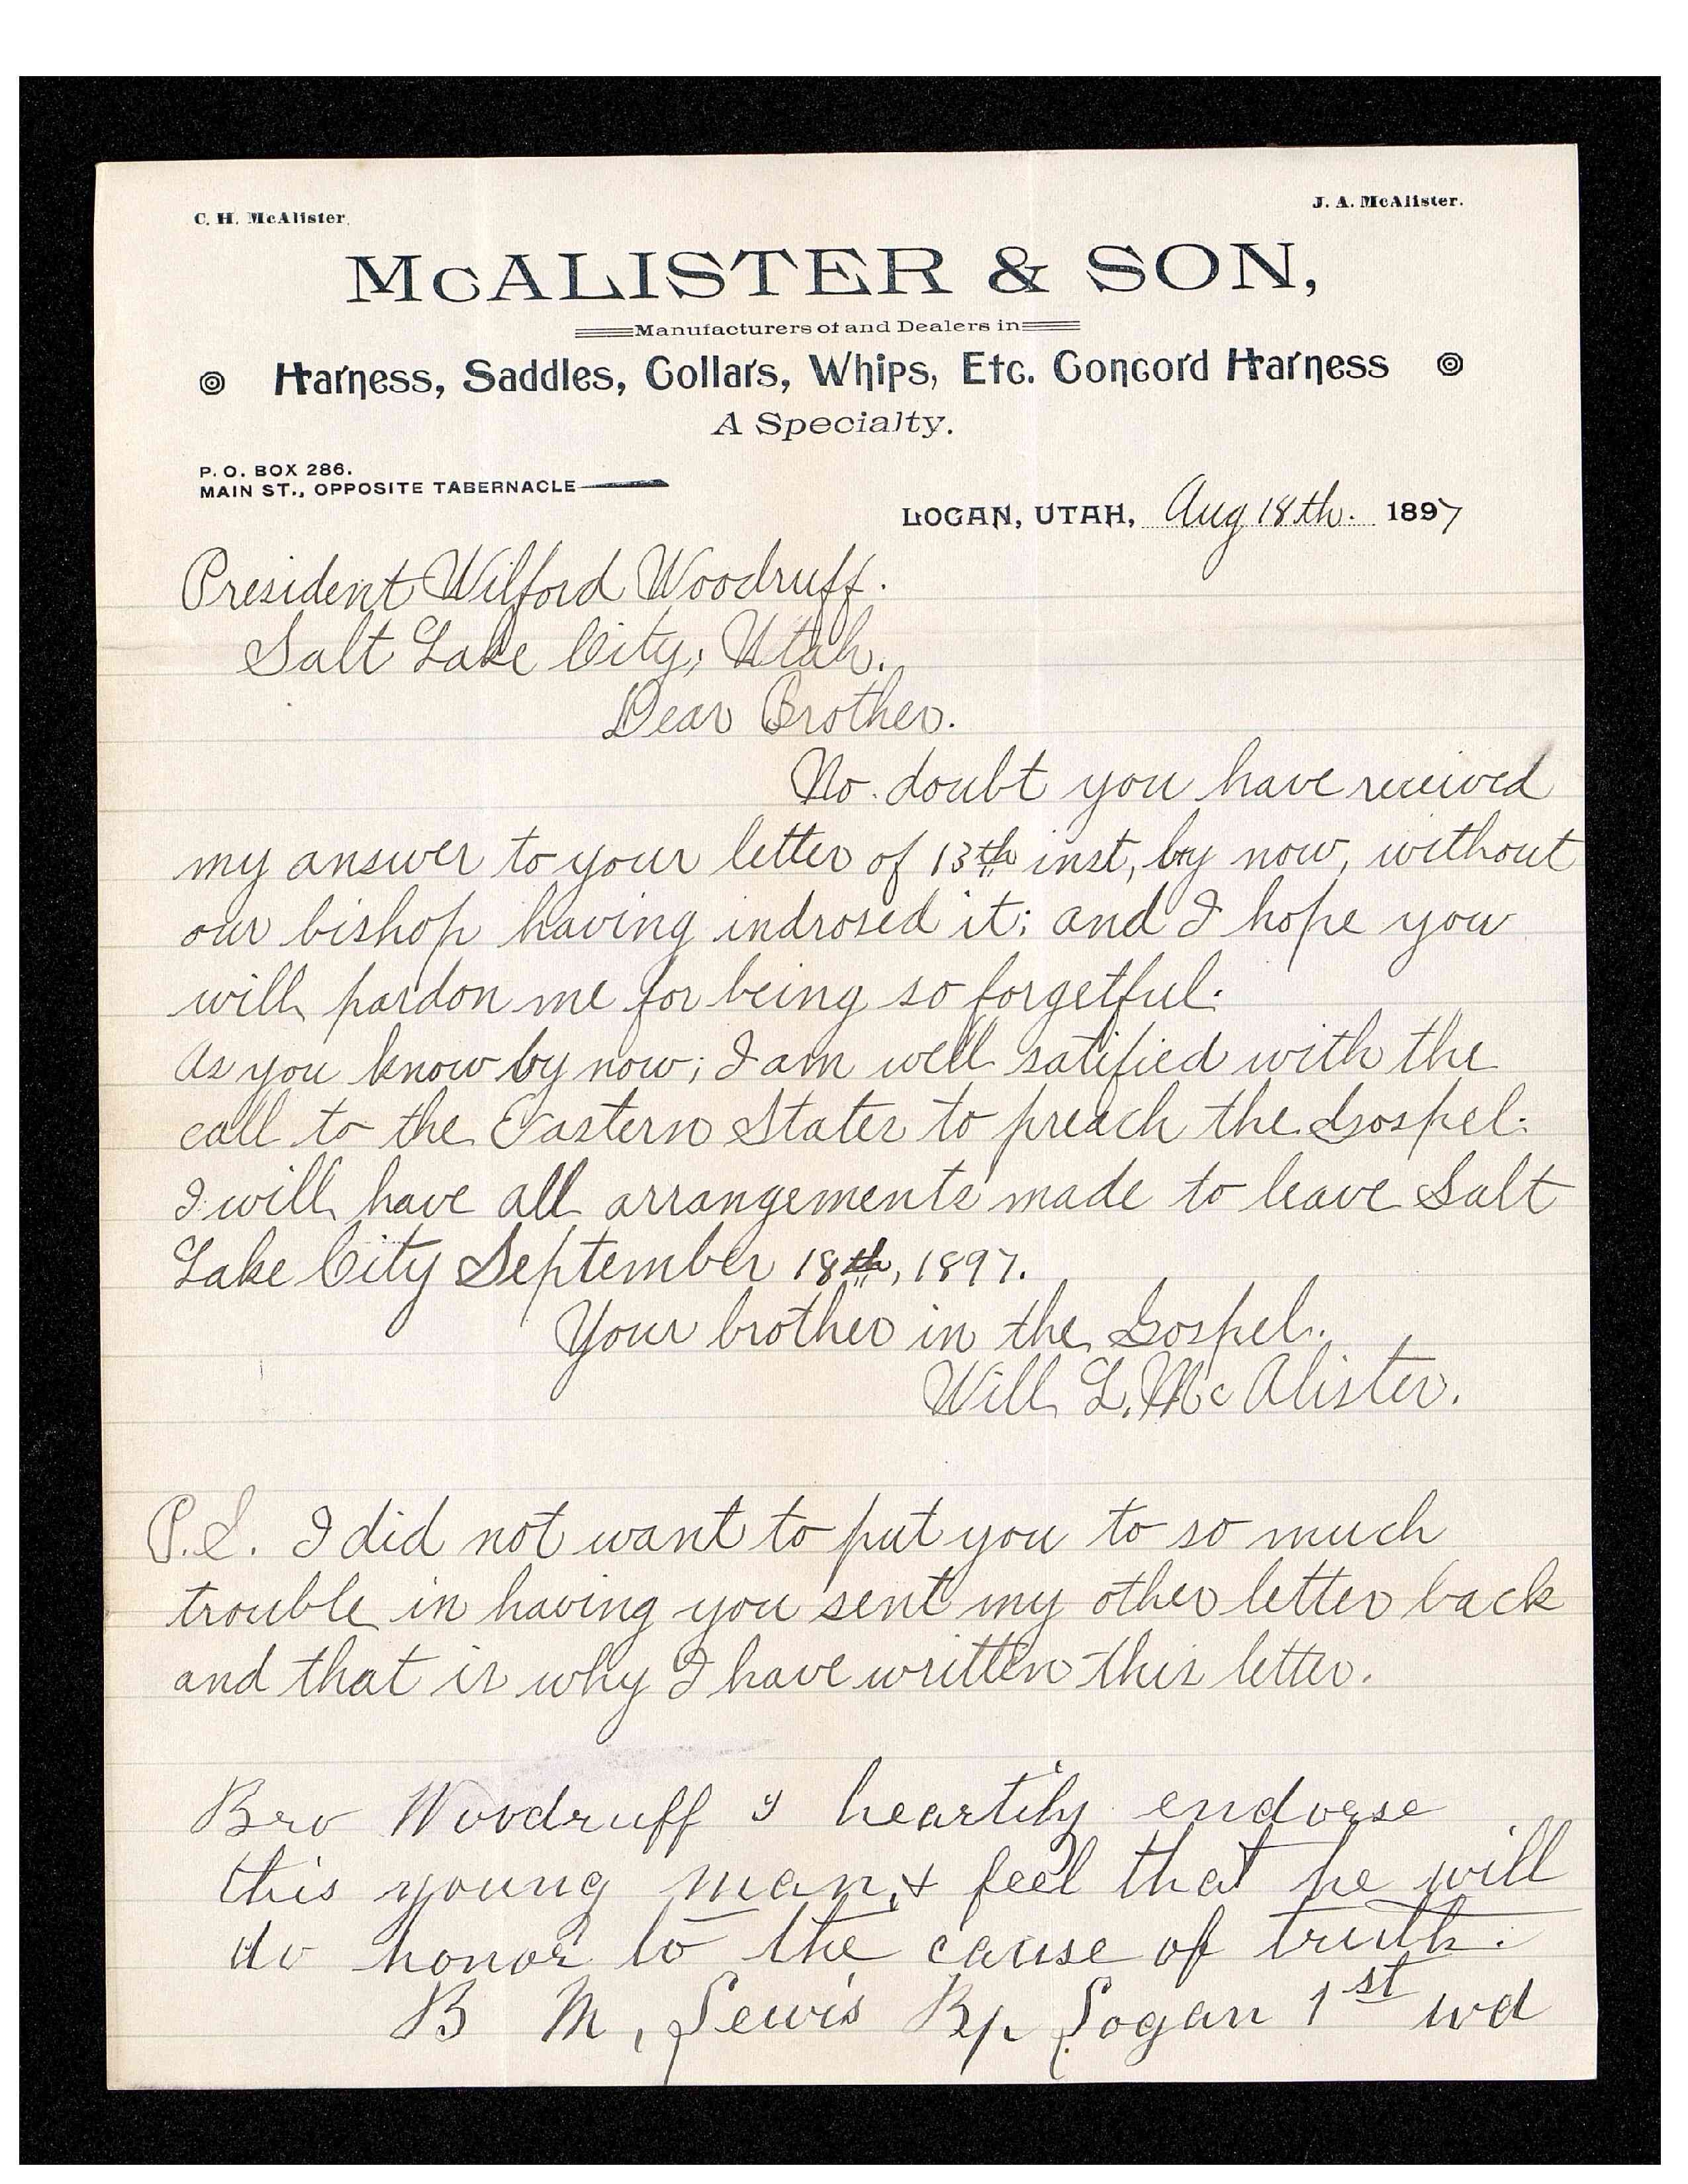 C. H. McAlister.
J. A. McAlister.
McALISTER & SON,
Manufacturers of and Dealers in
Harness, Saddles, Collars, Whips, Etc. Concord Harness
A Specialty.
P. O. BOX 286.
MAIN ST., OPPOSITE TABERNACLE
LOGAN, UTAH, Aug 18th. 1897
President Wilford Woodruff.
Salt Lake City, Utah.
Dear Brother.
No doubt you have received
my answer to your letter of 13th inst, by now, without
our bishop having indrosed it; and I hope you
will pardon me for being so forgetful.
As you know by now; I am well satified with the
call to the Eastern States to preach the Gospel.
I will have all arrangements made to leave Salt
Lake City September 18th, 1897.
Your brother in the Gospel.
Will L. McAlister.
P.S. I did not want to put you to so much
trouble in having you sent my other letter back
and that is why I have written this letter.
Bro Woodruff I heartily endorse
this young man, & feel that he will
do honor to the cause of truth.
B M, Lewis Bp. Logan 1st wd